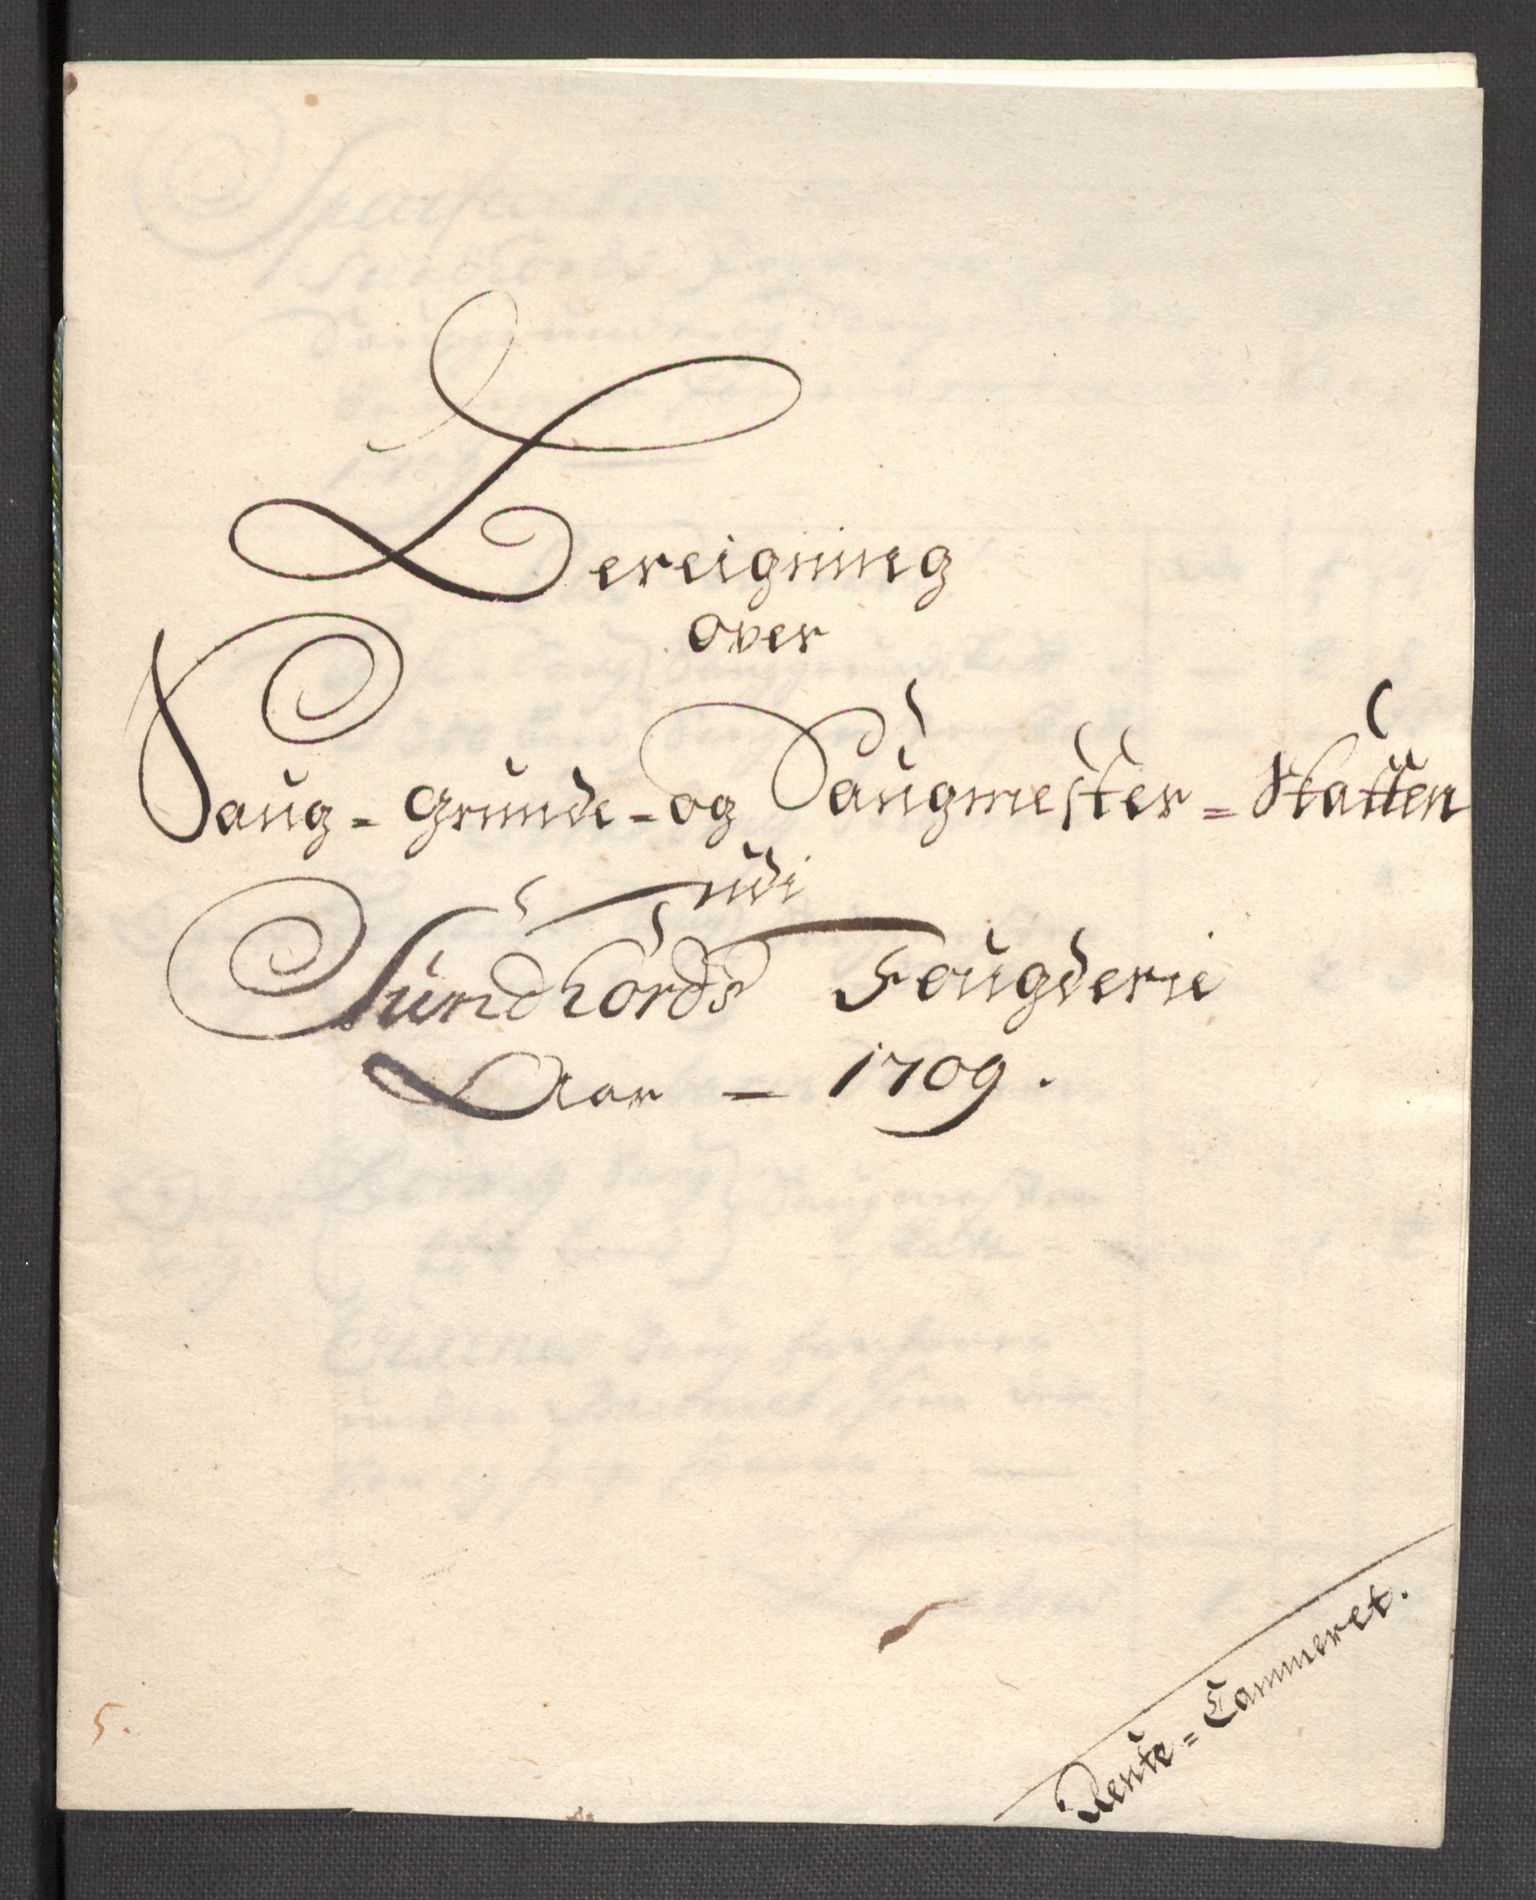 Bereigning
over
Saug - Grunde - og Saugmester = Skatten
udi
Sundhords Fougderie
Aar - 1709.
Rente = Cammeret.
5.